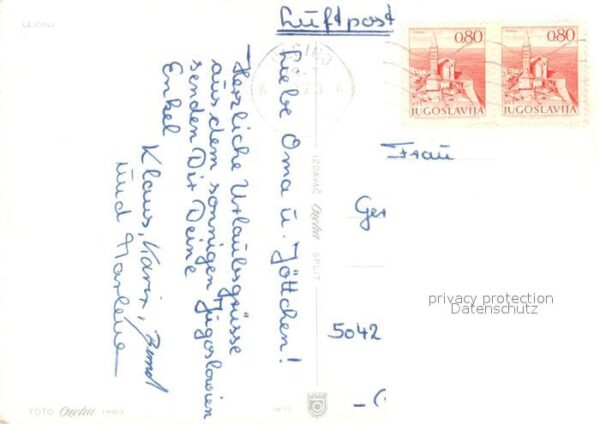 Luftpost
0.80
JUGOSLAVIJA
0.80
JUGOSLAVIJA
Liebe Oma u. Jöttchen!
Herzliche Urlaubsgrüsse
aus dem sonnigen Jugoslawien
senden Dir Deine
Enkel
Klaus, Karin, Bernd
und Marlene
Frau
Ge
5042
privacy protection
Datenschutz
IZDAVAČ
SPLIT
FOTO